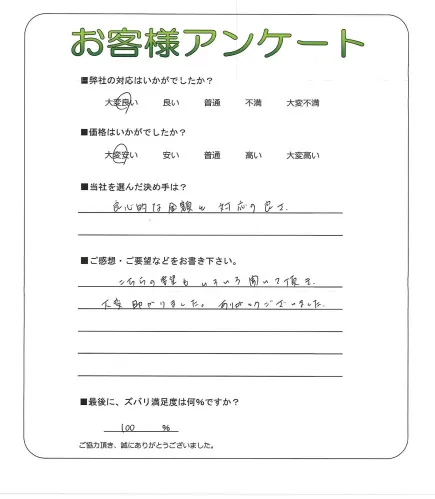 お客様アンケート
■弊社の対応はいかがでしたか？
大変良い 良い 普通 不満 大変不満
■価格はいかがでしたか？
大変安い 安い 普通 高い 大変高い
■当社を選んだ決め手は？
良心的な金額と対応の良さ。
■ご感想・ご要望などをお書き下さい。
こちらの希望もいろいろ聞いて頂き、
大変助かりました。ありがとうございました。
■最後に、ズバリ満足度は何％ですか？
100 ％
ご協力頂き、誠にありがとうございました。